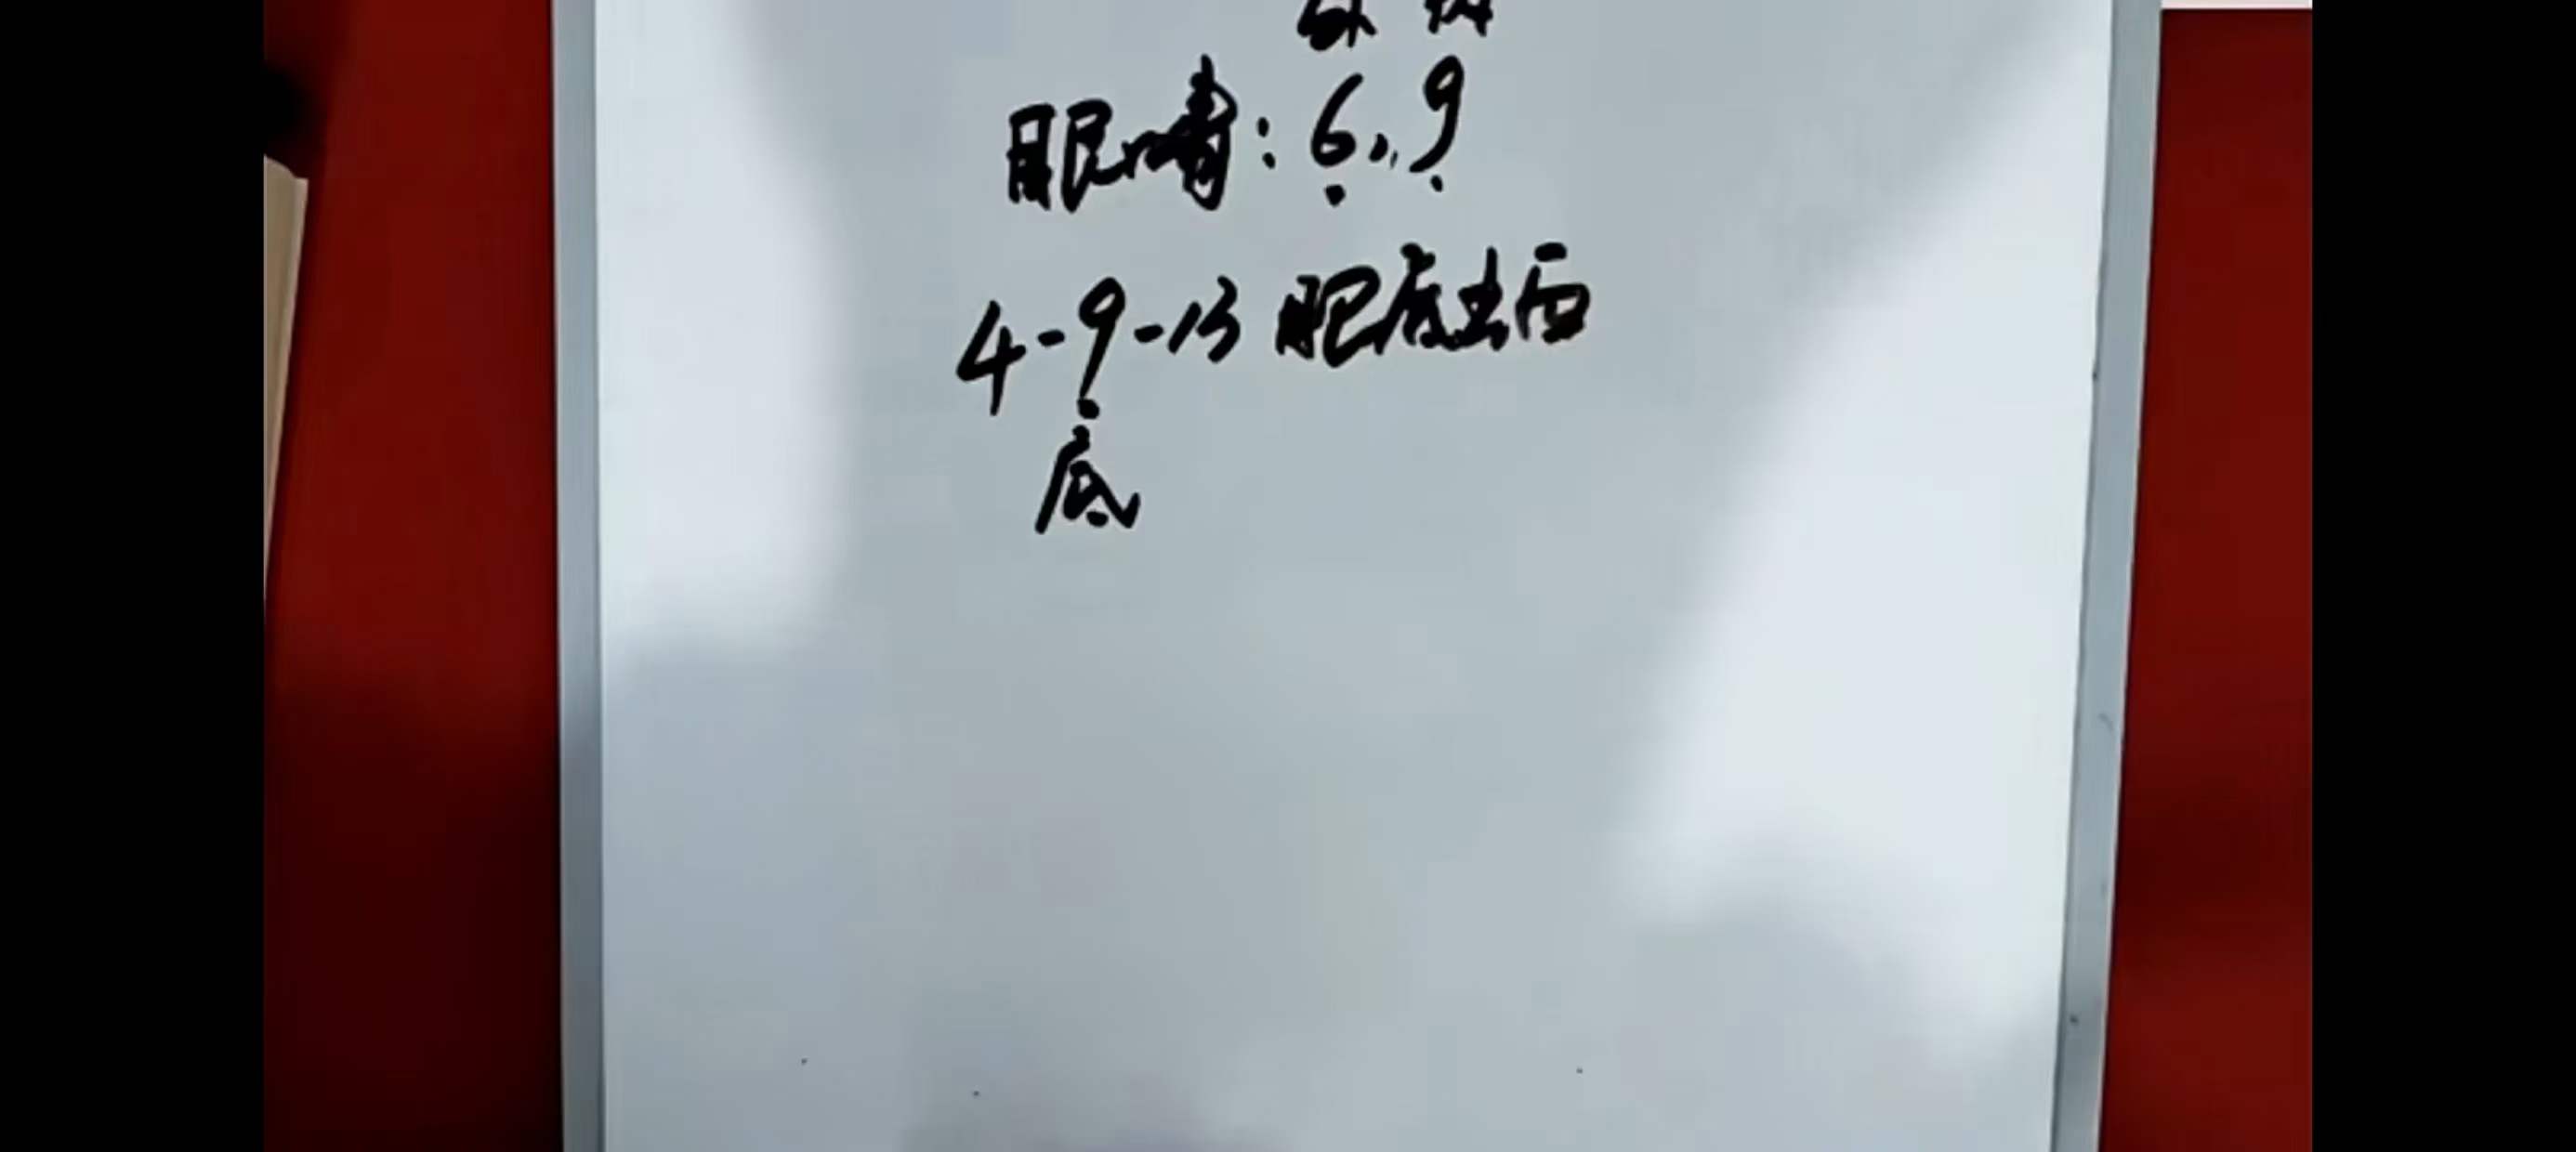 眼睛:6,9
4-9-13 眼底出血
底